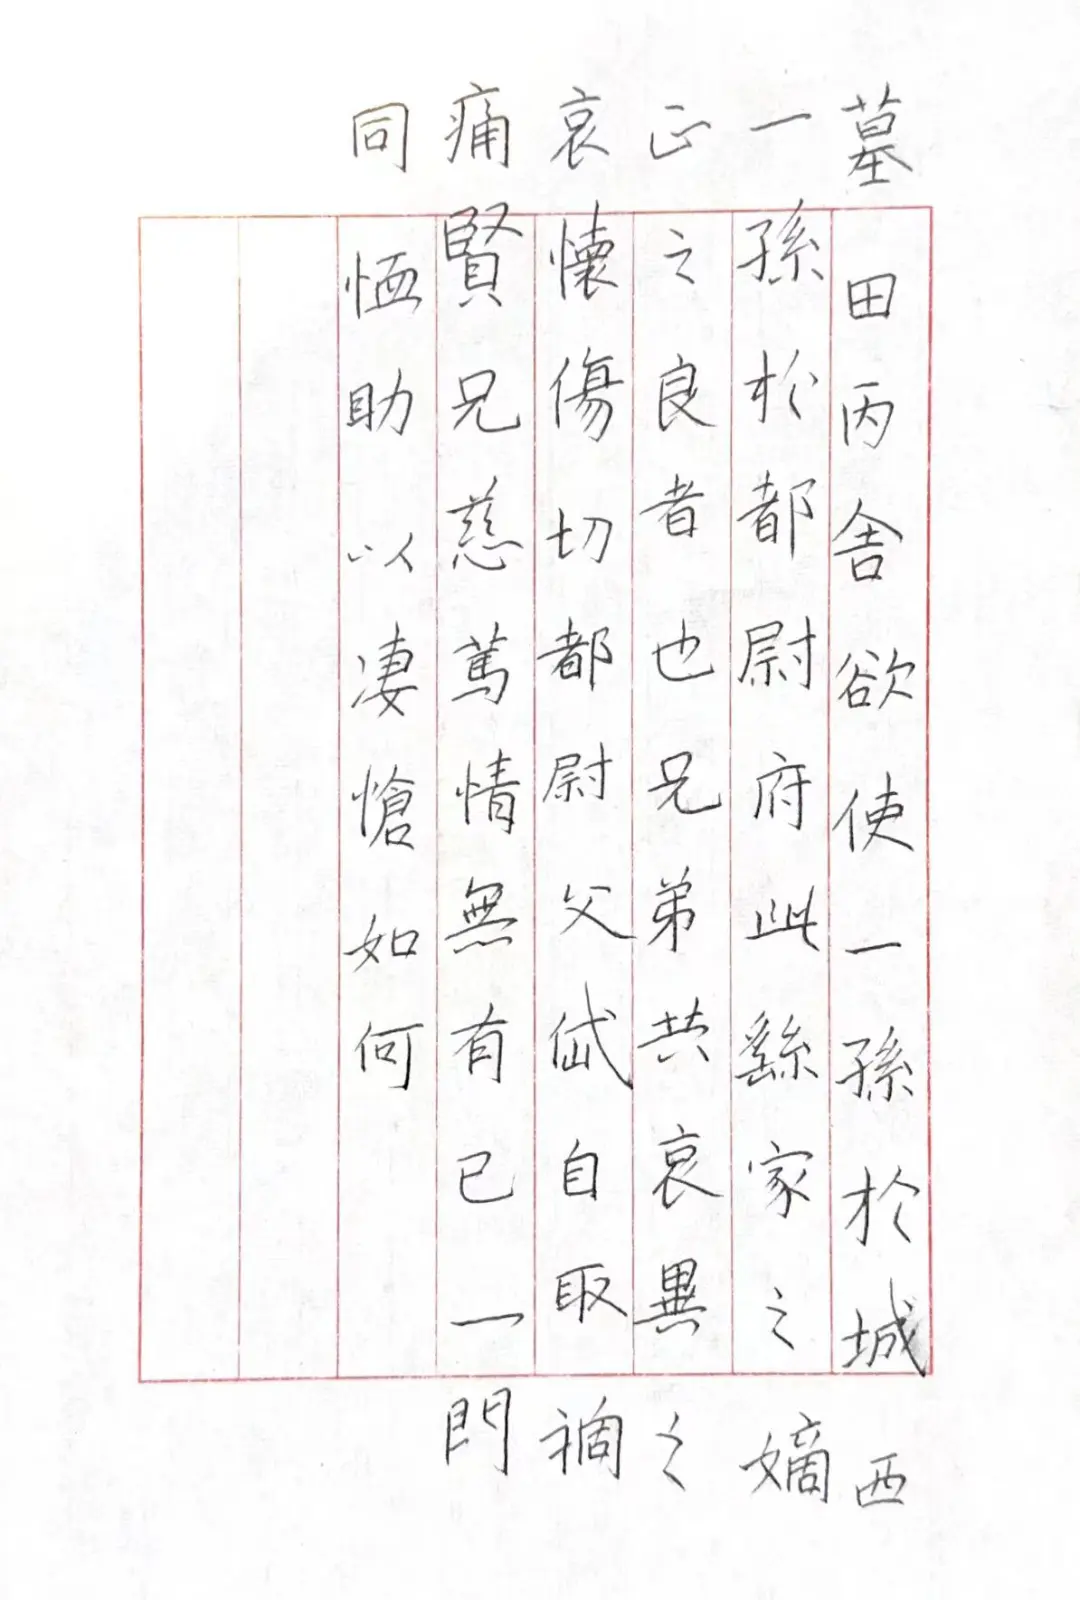 墓田丙舍欲使一孫於城西
一孫於都尉府此繇家之嫡
正之良者也兄弟共哀異之
哀懷傷切都尉父岱自取禍
痛賢兄慈篤情無有已一門
同恤助以凄愴如何